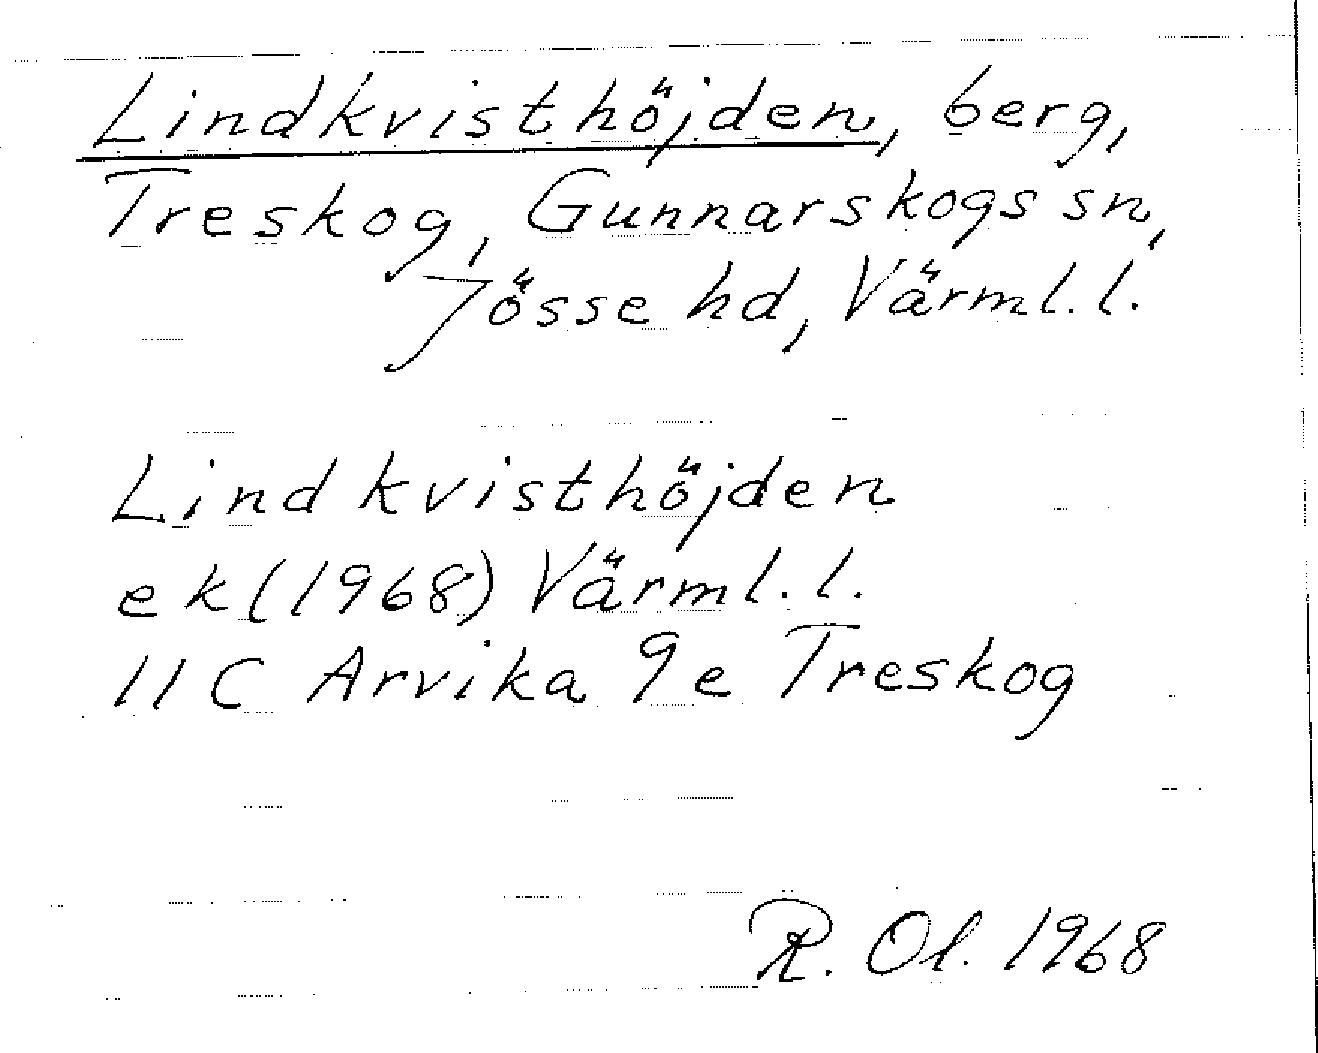 Lindkvisthöjden, berg,
Treskog, Gunnarskogs sn,
Jösse hd, Värml. l.
Lindkvisthöjden
ek (1968) Värml. l.
11 C Arvika 9e Treskog
R. Ol. 1968